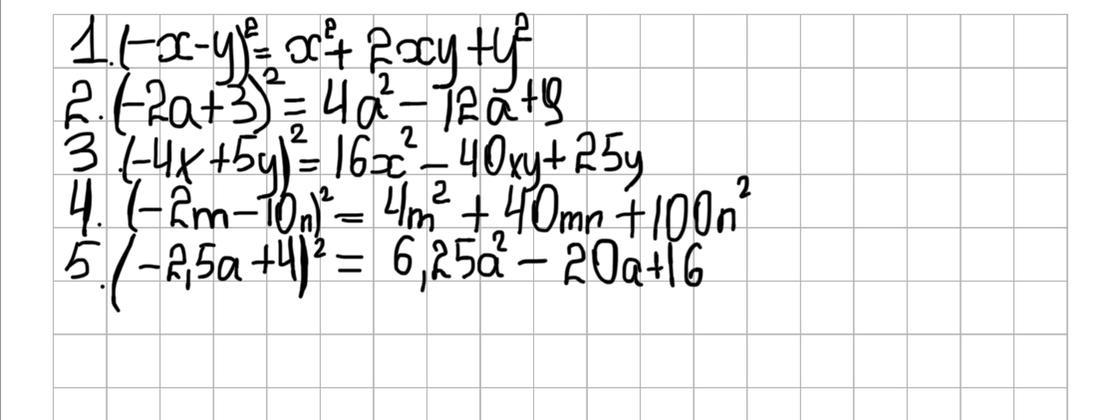 1. (-x-y)² = x² + 2xy + y²
2. (-2a+3)² = 4a² - 12a + 9
3. (-4x+5y)² = 16x² - 40xy + 25y
4. (-2m-10n)² = 4m² + 40mn + 100n²
5. (-2,5a+4)² = 6,25a² - 20a + 16